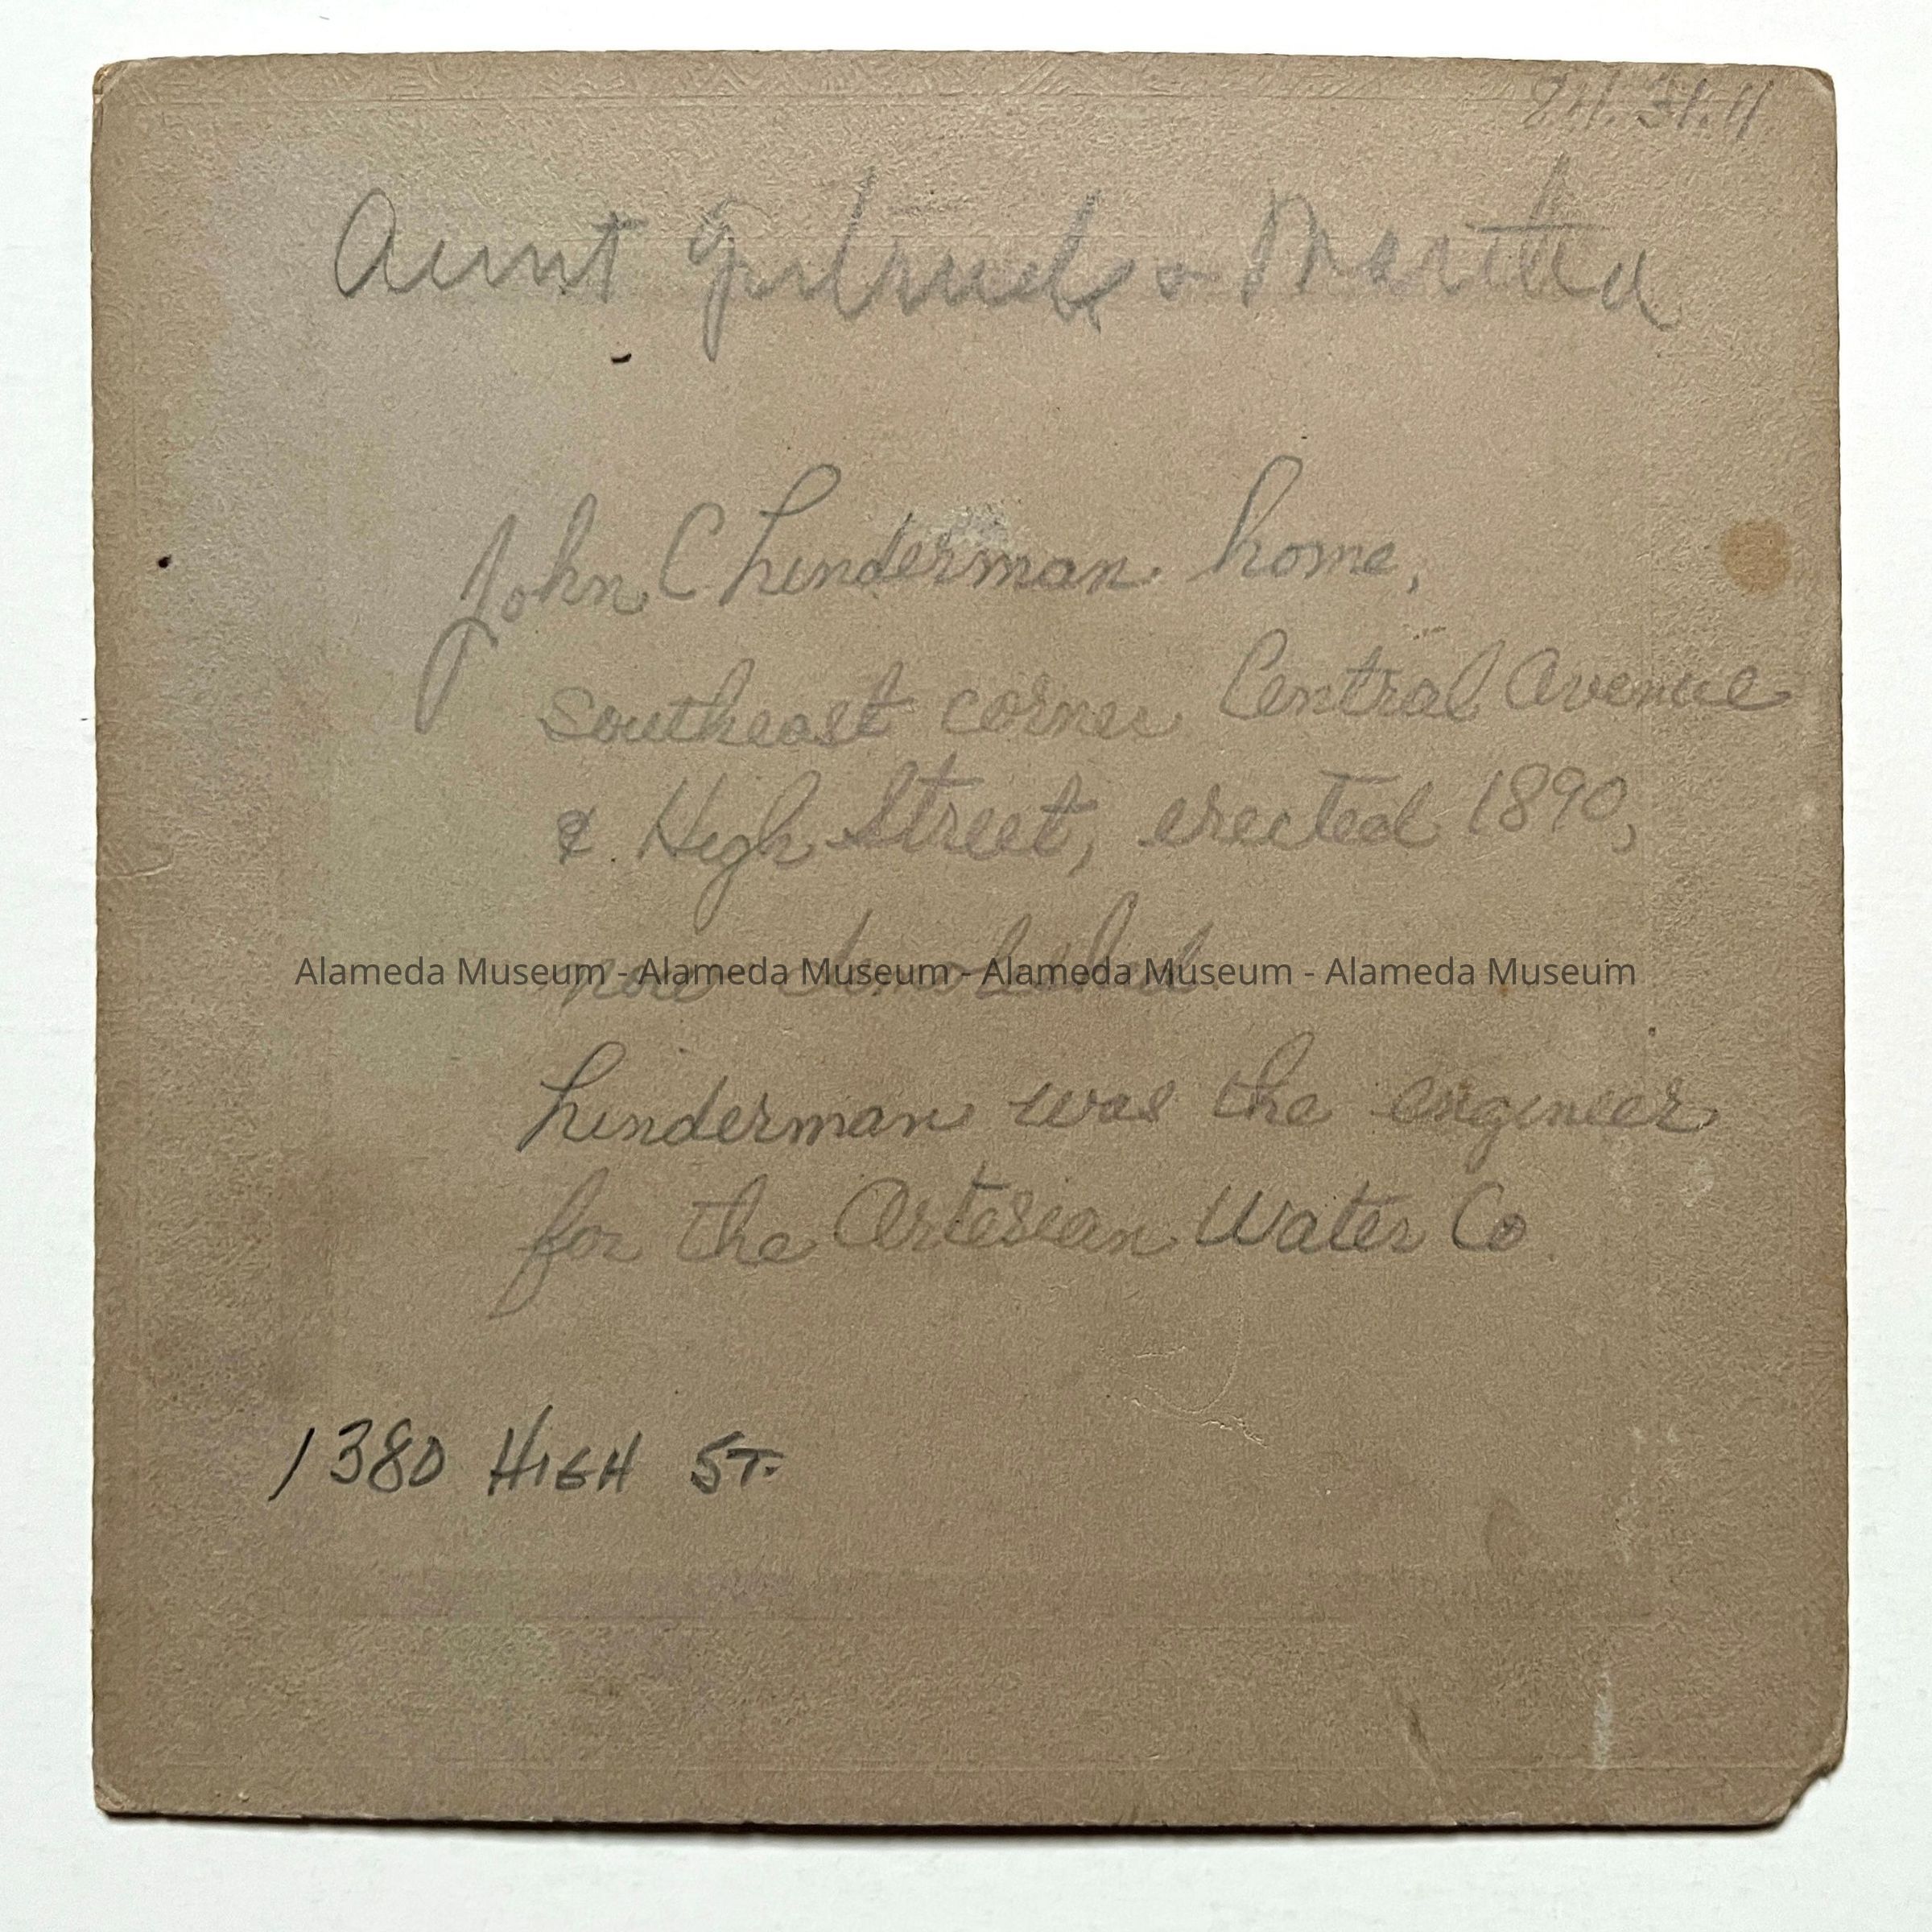 Aunt Gertrude & Martha
John C Linderman home,
southeast corner Central Avenue
& High Street, erected 1890,
now demolished
Alameda Museum - Alameda Museum - Alameda Museum - Alameda Museum
Linderman was the engineer
for the Artesian Water Co.
1380 HIGH ST.